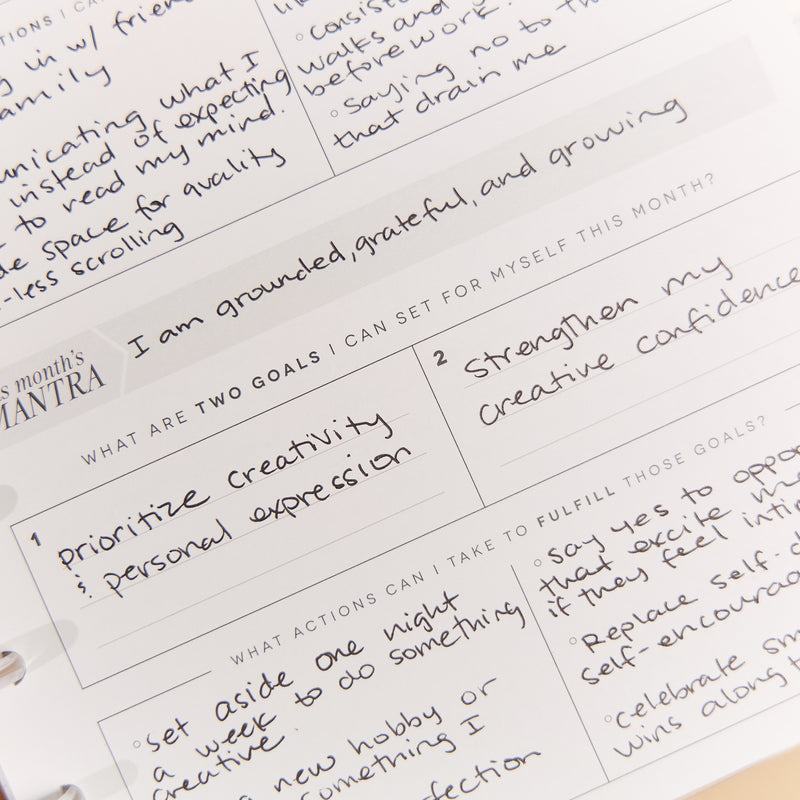 TIONS I CA
g in w/ frien
amily
unicating what I
instead of expecting
to read my mind.
de space for quality
-less scrolling
consist
walks and
before work.
saying no to th
that drain me
s month's
MANTRA
I am grounded, grateful, and growing
WHAT ARE TWO GOALS I CAN SET FOR MYSELF THIS MONTH?
1
prioritize creativity
& personal expression
2
Strengthen my
creative confidence
WHAT ACTIONS CAN I TAKE TO FULFILL THOSE GOALS?
set aside one night
a week to do something
creative.
a new hobby or
something I
fection
say yes to oppor
that excite me
if they feel inti
Replace self-d
self-encourag
celebrate sm
wins along t